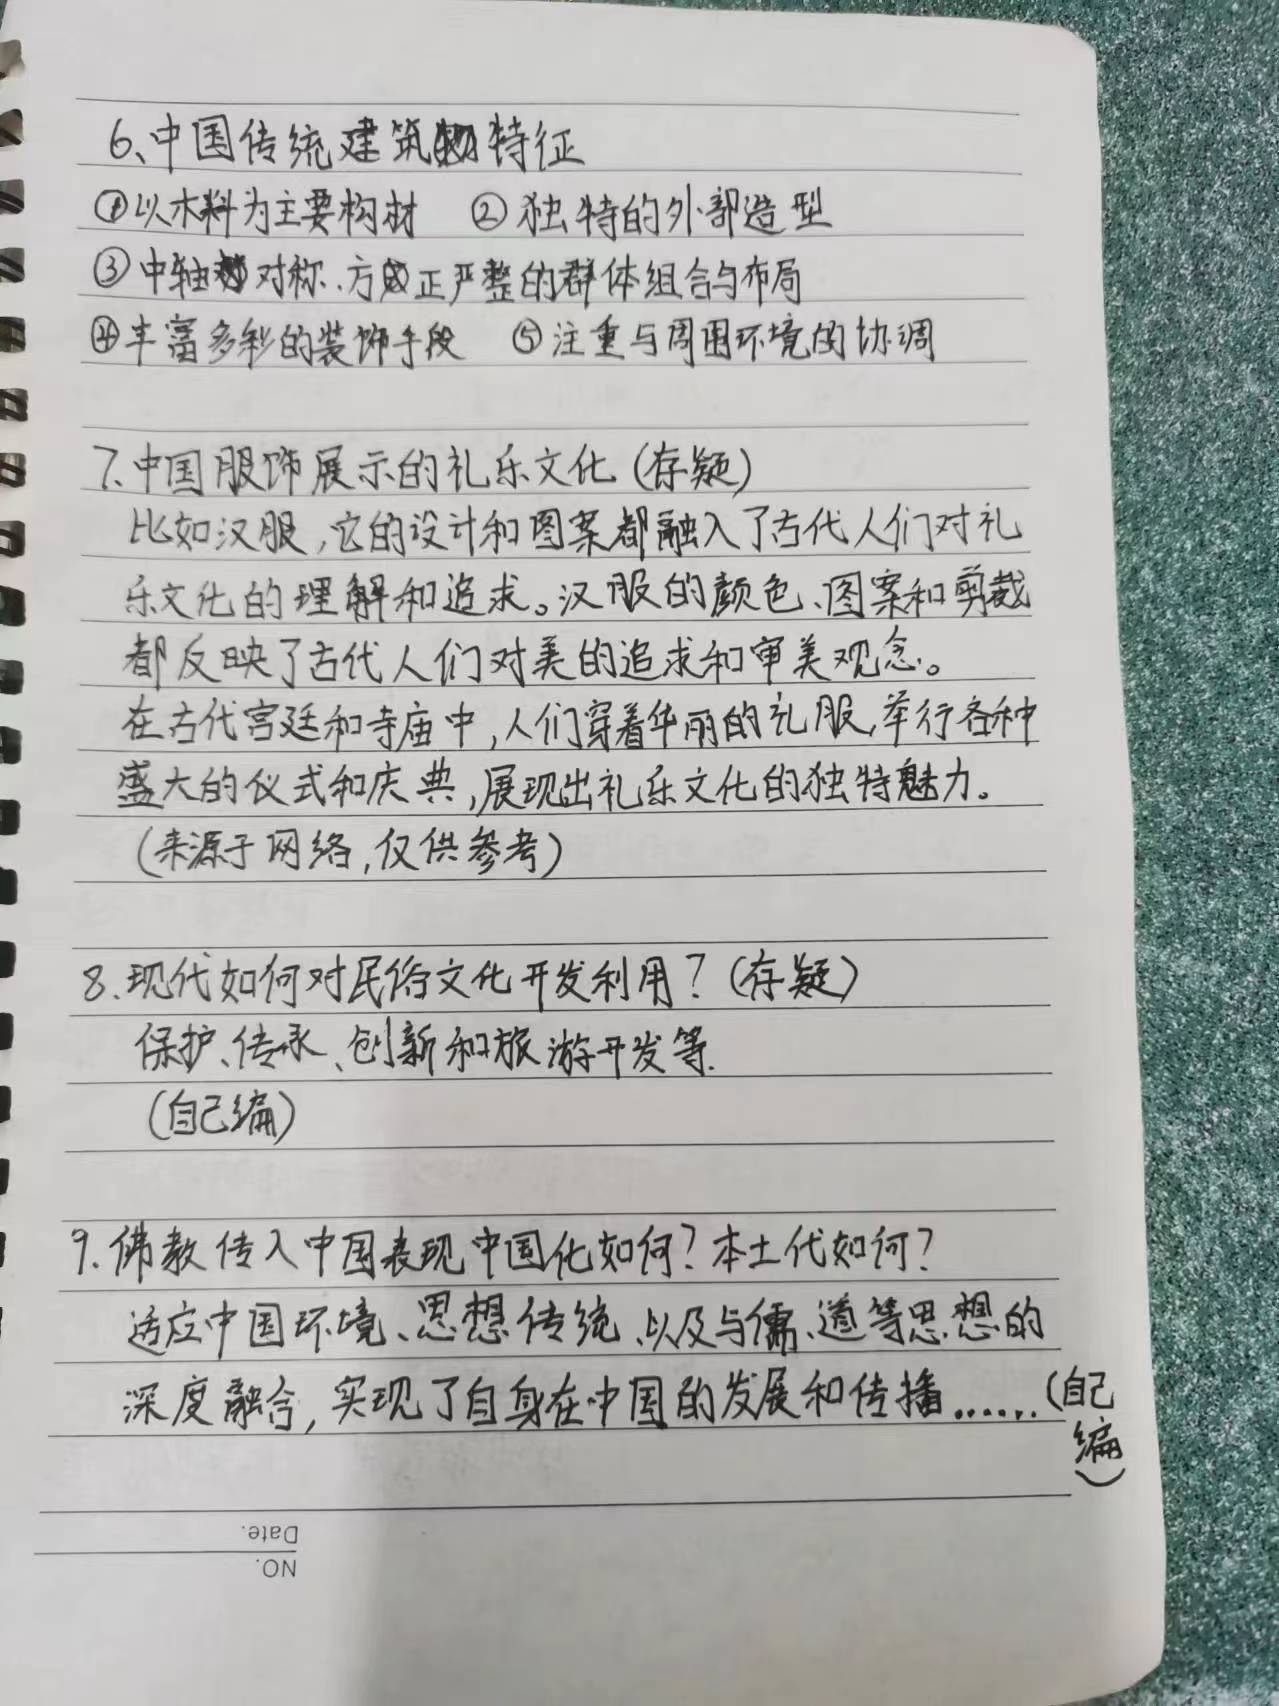 6、中国传统建筑特征
①以木料为主要构材 ②独特的外部造型
③中轴对称、方正严整的群体组合与布局
④丰富多彩的装饰手段 ⑤注重与周围环境的协调
7.中国服饰展示的礼乐文化(存疑)
比如汉服,它的设计和图案都融入了古代人们对礼
乐文化的理解和追求。汉服的颜色、图案和剪裁
都反映了古代人们对美的追求和审美观念。
在古代宫廷和寺庙中,人们穿着华丽的礼服,举行各种
盛大的仪式和庆典,展现出礼乐文化的独特魅力。
(来源于网络,仅供参考)
8.现代如何对民俗文化开发利用?(存疑)
保护、传承、创新和旅游开发等.
(自己编)
9.佛教传入中国表现中国化如何?本土代如何?
适应中国环境、思想传统、以及与儒、道等思想的
深度融合,实现了自身在中国的发展和传播......(自己
编)
Date.
NO.